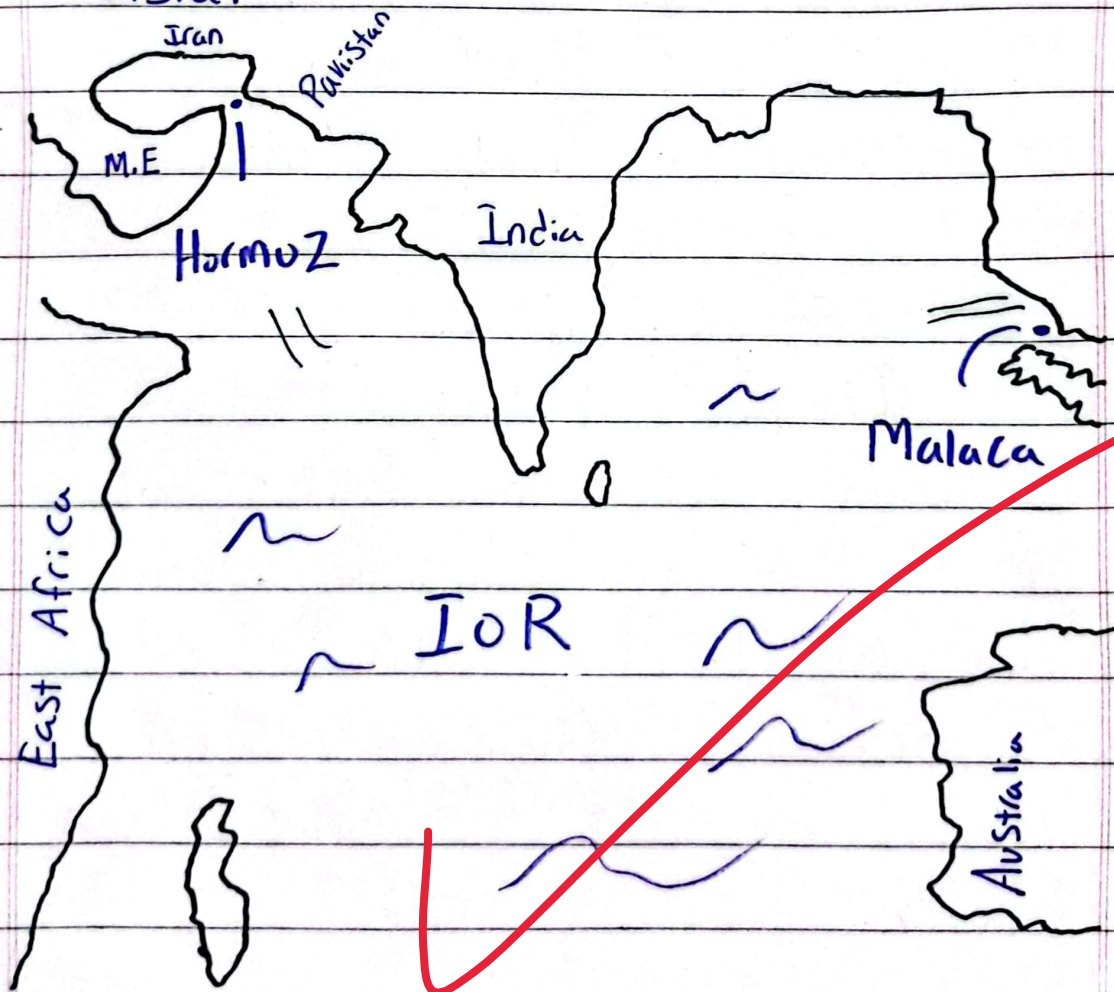 Iran
Pakistan
M.E
Hormuz
India
Malaca
East Africa
IoR
Australia